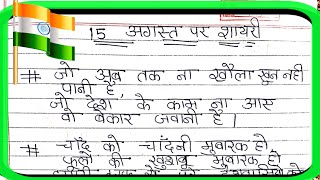 15 अगस्त पर शायरी
# जो अब तक ना खौला खुन नही
पानी है,
जो देश के काम ना आस
वो बेकार जवानी है।
# चाँद को चाँदनी मुबारक हो,
फूलो की खुशबू मुबारक हो